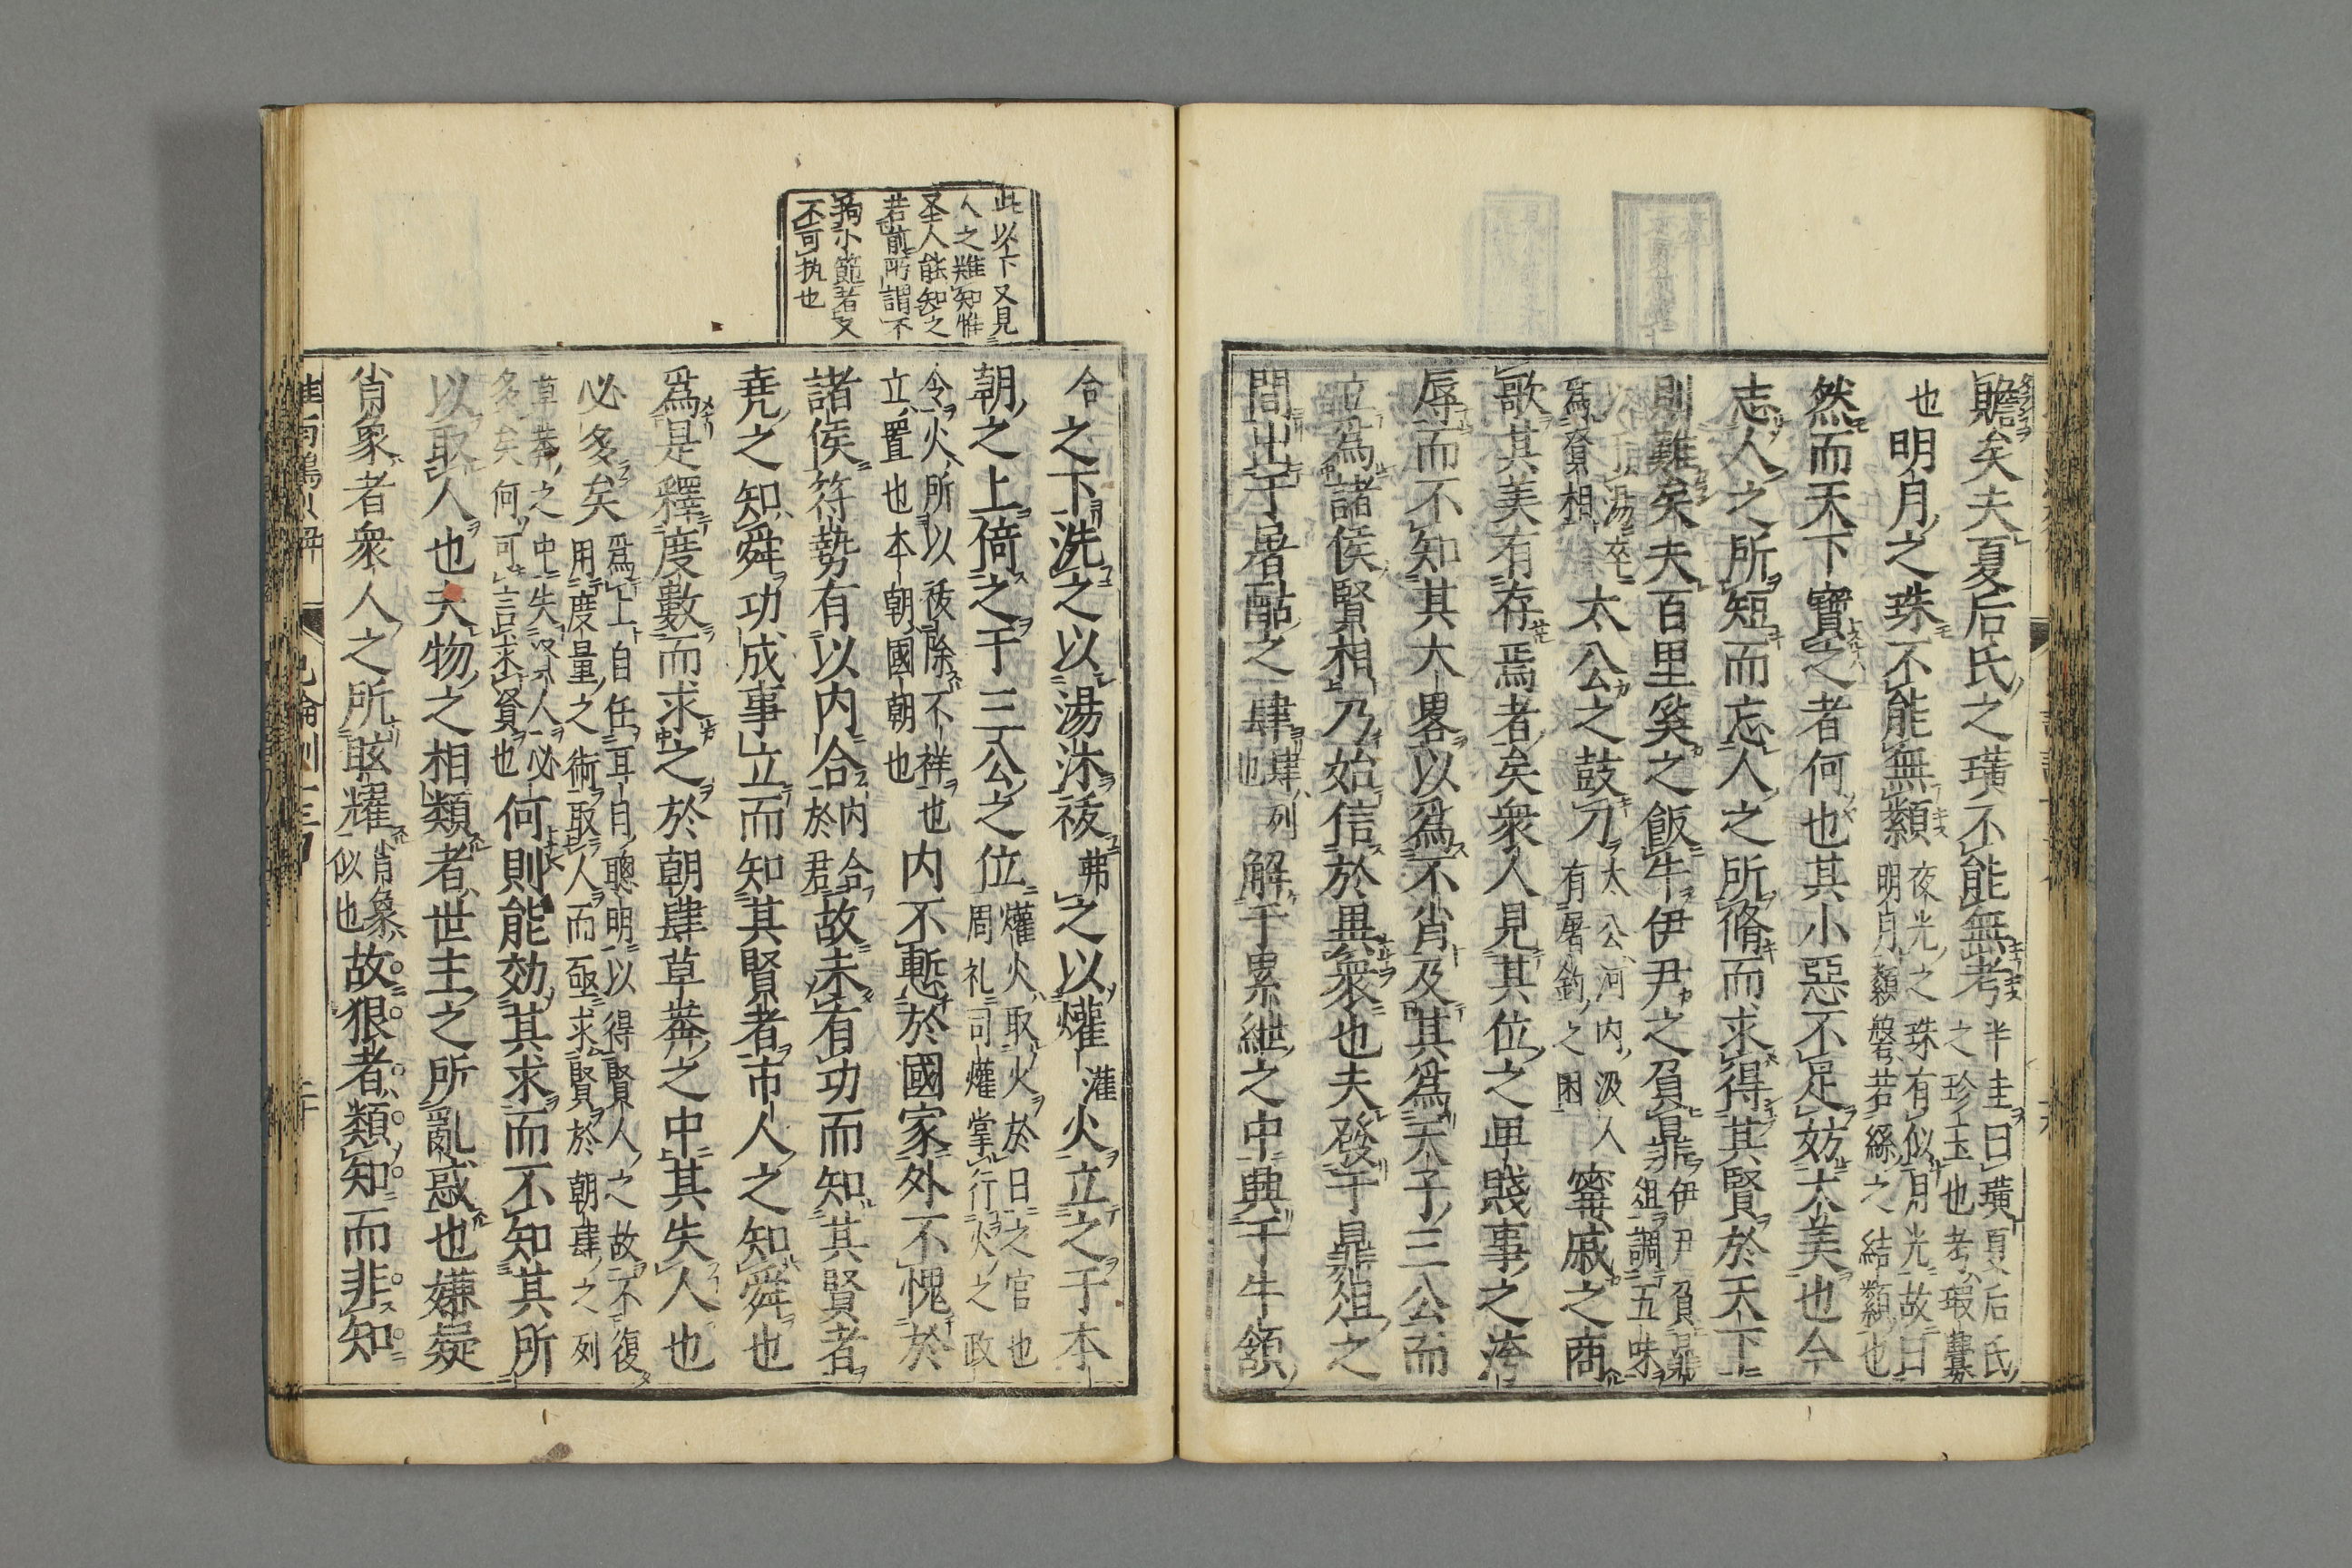 贍矣夫夏后氏之璜不能無考半圭曰璜夏后氏之珍玉也考瑕釁
也明月之珠不能無纇夜光之珠有似月光故曰明月纇磐若絲之結纇也
然而天下寶之者何也其小惡不足妨大美也今
志人之所短而忘人之所脩而求得其賢於天下
則難矣夫百里奚之飯牛伊尹之負鼎伊尹負鼎俎調五味
以于湯卒為賢相太公之鼓刀太公河内汲人有屠釣之困甯戚之商
歌其美有存焉者矣衆人見其位之卑賤事之洿
辱而不知其大畧以爲不肖及其爲天子三公而
立爲諸侯賢相乃始信於異衆也夫發于鼎俎之
間出于屠酤之肆肆列也解于累紲之中興于牛頷
合之下洗之以湯沐祓弗之以爟灌火立之于本
朝之上倚之于三公之位爟火取火於日之官也周礼司爟掌行火之政
令火所以祓除不祥也立置也本朝國朝也内不慙於國家外不愧於
諸侯符勢有以内合内合於君故未有功而知其賢者
堯之知舜功成事立而知其賢者市人之知舜也
爲是釋度數而求之於朝肆草莽之中其失人也
必多矣爲上自任耳目聰明以得賢人之故不復用度量之術取人而亟求賢於朝肆之列
草莽之中失賢人必多矣何可言求賢也何則能効其求而不知其所
以取人也夫物之相類者世主之所亂惑也嫌疑
肖象者衆人之所眩耀肖象似也故狠者類知而非知
此以下又見
人之難知惟
圣人能知之
若前所謂不
拘小節者又
不可执也